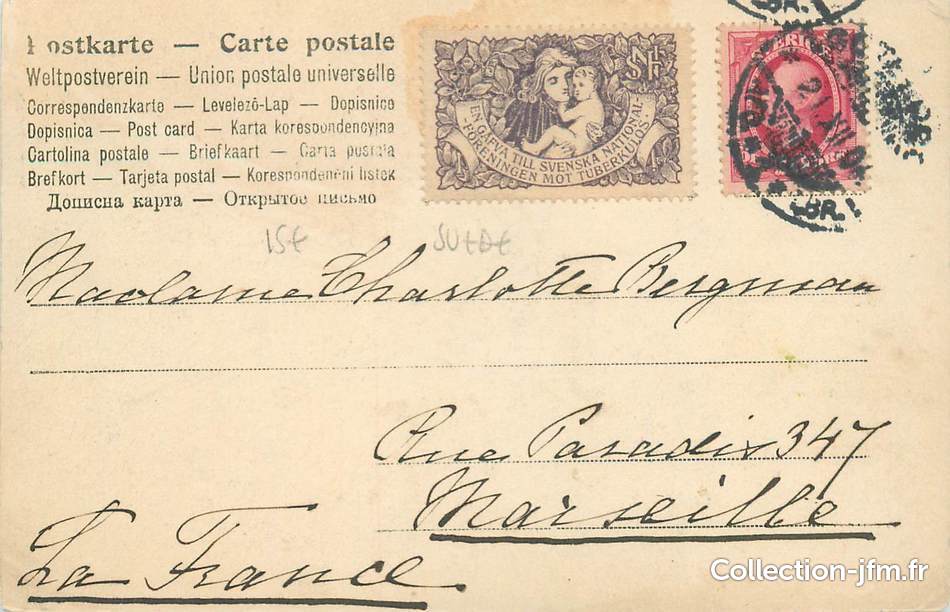 Postkarte — Carte postale
Weltpostverein — Union postale universelle
Correspondenzkarte — Levelezö-Lap — Dopisnice
Dopisnica — Post card — Karta korespondencyjna
Cartolina postale — Briefkaart — Carta postala
Brefkort — Tarjeta postal — Korespondenční lístek
Дописна карта — Открытое письмо
EN GÅFVA TILL SVENSKA NATIONAL-
FÖRENINGEN MOT TUBERKULOS.
SVERIGE
15€
SUEDE
Madame Charlotte Bergman
Rue Paradis 347
Marseille
La France
Collection-jfm.fr